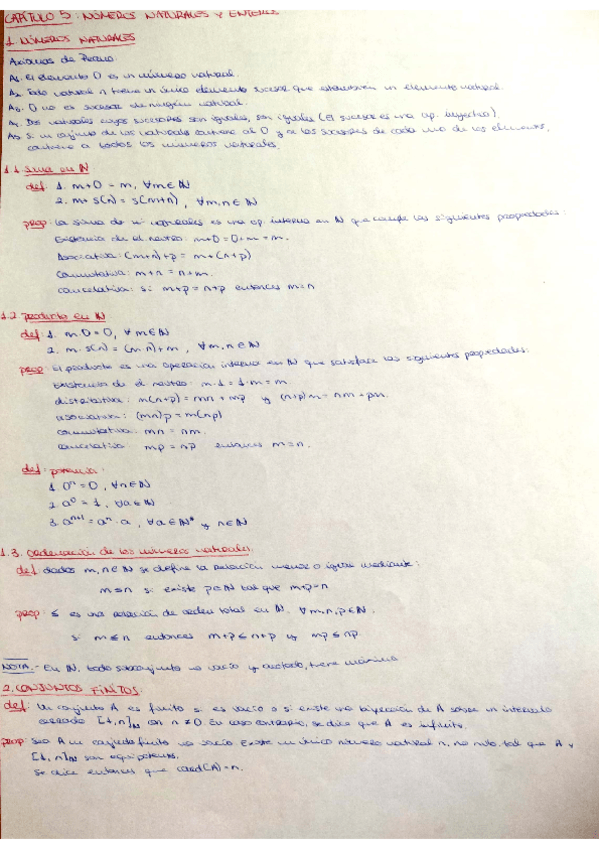 CAPÍTULO 5: NÚMEROS NATURALES Y ENTEROS
1. NÚMEROS NATURALES
Axiomas de Peano.
A1. El elemento 0 es un número natural.
A2. Todo natural n tiene un único elemento sucesor que también es un elemento natural.
A3. 0 no es sucesor de ningún natural.
A4. Dos naturales cuyos sucesores son iguales, son iguales (el sucesor es una ap. inyectiva).
A5. Si un conjunto de los naturales contiene al 0 y a los sucesores de cada uno de los elementos,
contiene a todos los números naturales.
1.1 Suma en ℕ
def. 1. m+0 = m, ∀m∈ℕ
2. m+s(n) = s(m+n), ∀m,n∈ℕ
prop: La suma de nº naturales es una op. interna en ℕ que cumple las siguientes propiedades:
Existencia de el. neutro: m+0 = 0+m = m.
Asociativa: (m+n)+p = m+(n+p)
Conmutativa: m+n = n+m.
cancelativa: si m+p = n+p entonces m=n
1.2 Producto en ℕ
def: 1. m·0 = 0, ∀m∈ℕ
2. m·s(n) = (m·n)+m, ∀m,n∈ℕ
prop: el producto es una operación interna en ℕ que satisface las siguientes propiedades:
Existencia de el. neutro: m·1 = 1·m = m.
distributiva: m(n+p) = mn + mp y (n+p)m = nm + pm.
asociativa: (mn)p = m(np)
conmutativa: mn = nm.
cancelativa: mp = np entonces m=n.
def: potencia:
1. 0ⁿ = 0, ∀n∈ℕ
2. a⁰ = 1, ∀a∈ℕ
3. aⁿ⁺¹ = aⁿ·a, ∀a∈ℕ* y n∈ℕ
1.3. Ordenación de los números naturales.
def. dados m,n∈ℕ se define la relación menor o igual mediante:
m≤n si existe p∈ℕ tal que m+p=n
prop: ≤ es una relación de orden total en ℕ. ∀m,n,p∈ℕ.
si m≤n entonces m+p≤n+p y mp≤np.
NOTA.- En ℕ, todo subconjunto no vacío y acotado, tiene máximo
2. CONJUNTOS FINITOS:
def: Un conjunto A es finito si es vacío o si existe una biyección de A sobre un intervalo
cerrado [1,n]ℕ con n≠0. En caso contrario, se dice que A es infinito.
prop: Sea A un conjunto finito no vacío. Existe un único número natural n, no nulo, tal que A y
[1,n]ℕ son equipotentes.
Se dice entonces que card(A)=n.